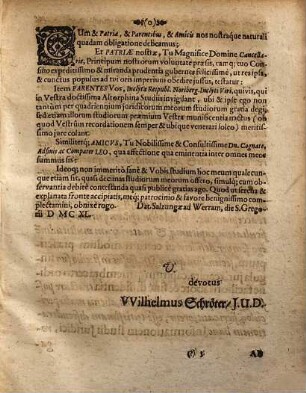 (o)
CUm & Patriæ, & Parentibus, & Amicis nos nostraque naturali
quadam obligatione debeamus;
Et PATRIÆ nostræ, Tu Magnifice Domine Cancella-
rie, Principum nostrorum voluntate præsis, tamq; tuo Consi-
lio expeditissimo & miranda prudentia gubernes felicissime, ut res ipsa,
& cunctus populus ad tuorum imperium obedire jussus, testatur;
Item PARENTES Vos, Inclytæ Reipubl. Noriberg. Inclyti Viri, quivis, qui
in Vestra doctissima Altorphina Studiis invigilavi, ubi & ipse ego non
tantùm per quadriennium meorum studiorum gratia degi,
sed etiam illorum studiorum præmium vestra munificentia accepi
(quò Vestrûm recordationem semper & ubique venerari soleo) meritis-
simo jure colam:
Similiterq; AMICUS, Tu Nobilissime & Consultissime Dn. Cognate,
Adfinis ac Compater LEO, qua affectione qua eminentia inter omnes meos
summus sis:
Ideoq; non immeritò sanè & Vobis studium hoc meum quale cun-
que etiam sit, quasi decimas studiorum meorum offero, simulq; eum obser-
vantia debite contestanda quasi publicè gratias ago. Quod ut tecta &
experrectâ fronte accipiatis, patrocinio, & favore henignissimo
complectamini, obnixè rogo. Dat. Saltzungæ ad Werram, die S. Grego-
rii D MC XL.
V.
devotus
VVilhelmus Schröter/J.U.D.
AD